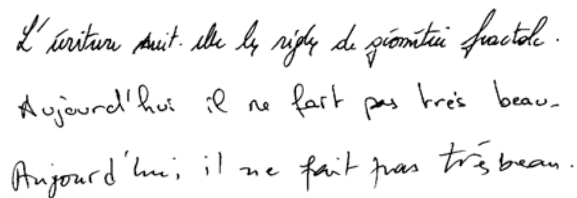 L'écriture suit-elle les règles de géométrie fractale.
Aujourd'hui il ne fait pas très beau.
Aujourd'hui, il ne fait pas très beau.